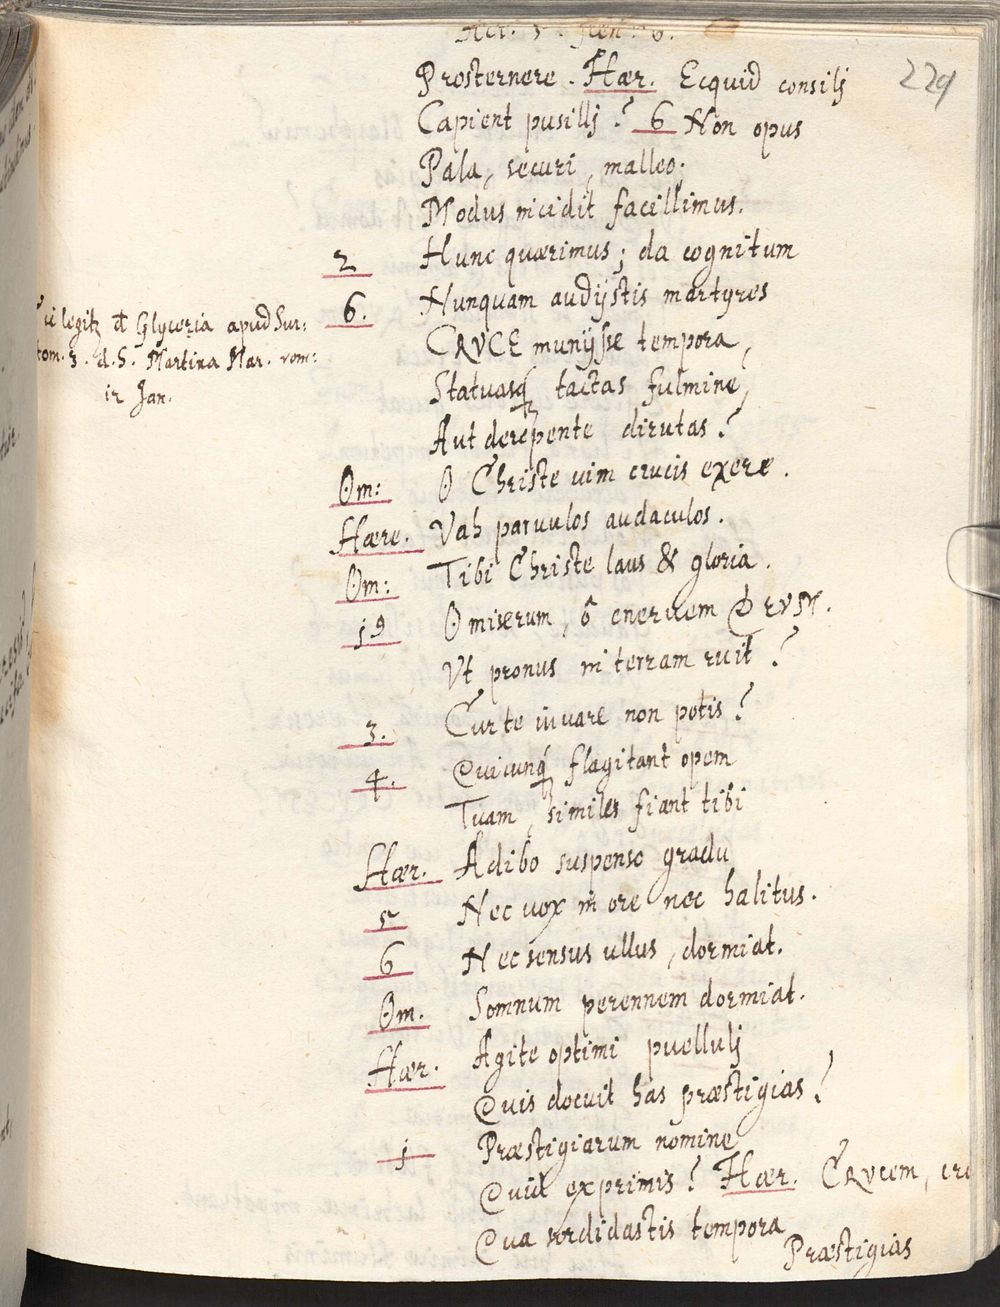 Act. 5. scen. 6.
229
Prosternere. Hær. Ecquid consilij
Capient pusilli? 6 Non opus
Pala, securi, malleo;
Modus incidit facillimus.
2 Hunc quærimus; da cognitum
6. Nunquam audijstis martyres
CRVCE munijsse tempora,
Statuasq tactas fulmine,
Aut derepente dirutas?
legitr de Glyceria apud Sur:
tom. 3. d. S. Martina Mar. rom:
12 Jan.
Om: O Christe uim crucis exere.
Hære. Vah paruulos audaculos.
Om: Tibi Christe laus & gloria.
19 O miserum, ô eneruem DEVM.
Vt pronus in terram ruit?
3. Cur te iuuare non potis?
4. Quicunq flagitant opem
Tuam, similes fiant tibi
Hær. Adibo suspenso gradu
5 Nec uox in ore nec halitus.
6 Nec sensus ullus, dormiat.
Om. Somnum perennem dormiat.
Hær. Agite optimi puellulj
Quis docuit has præstigias?
1 Præstigiarum nomine
Quid exprimis? Hær. CRVcem,
Qua sordidastis tempora
Præstigias